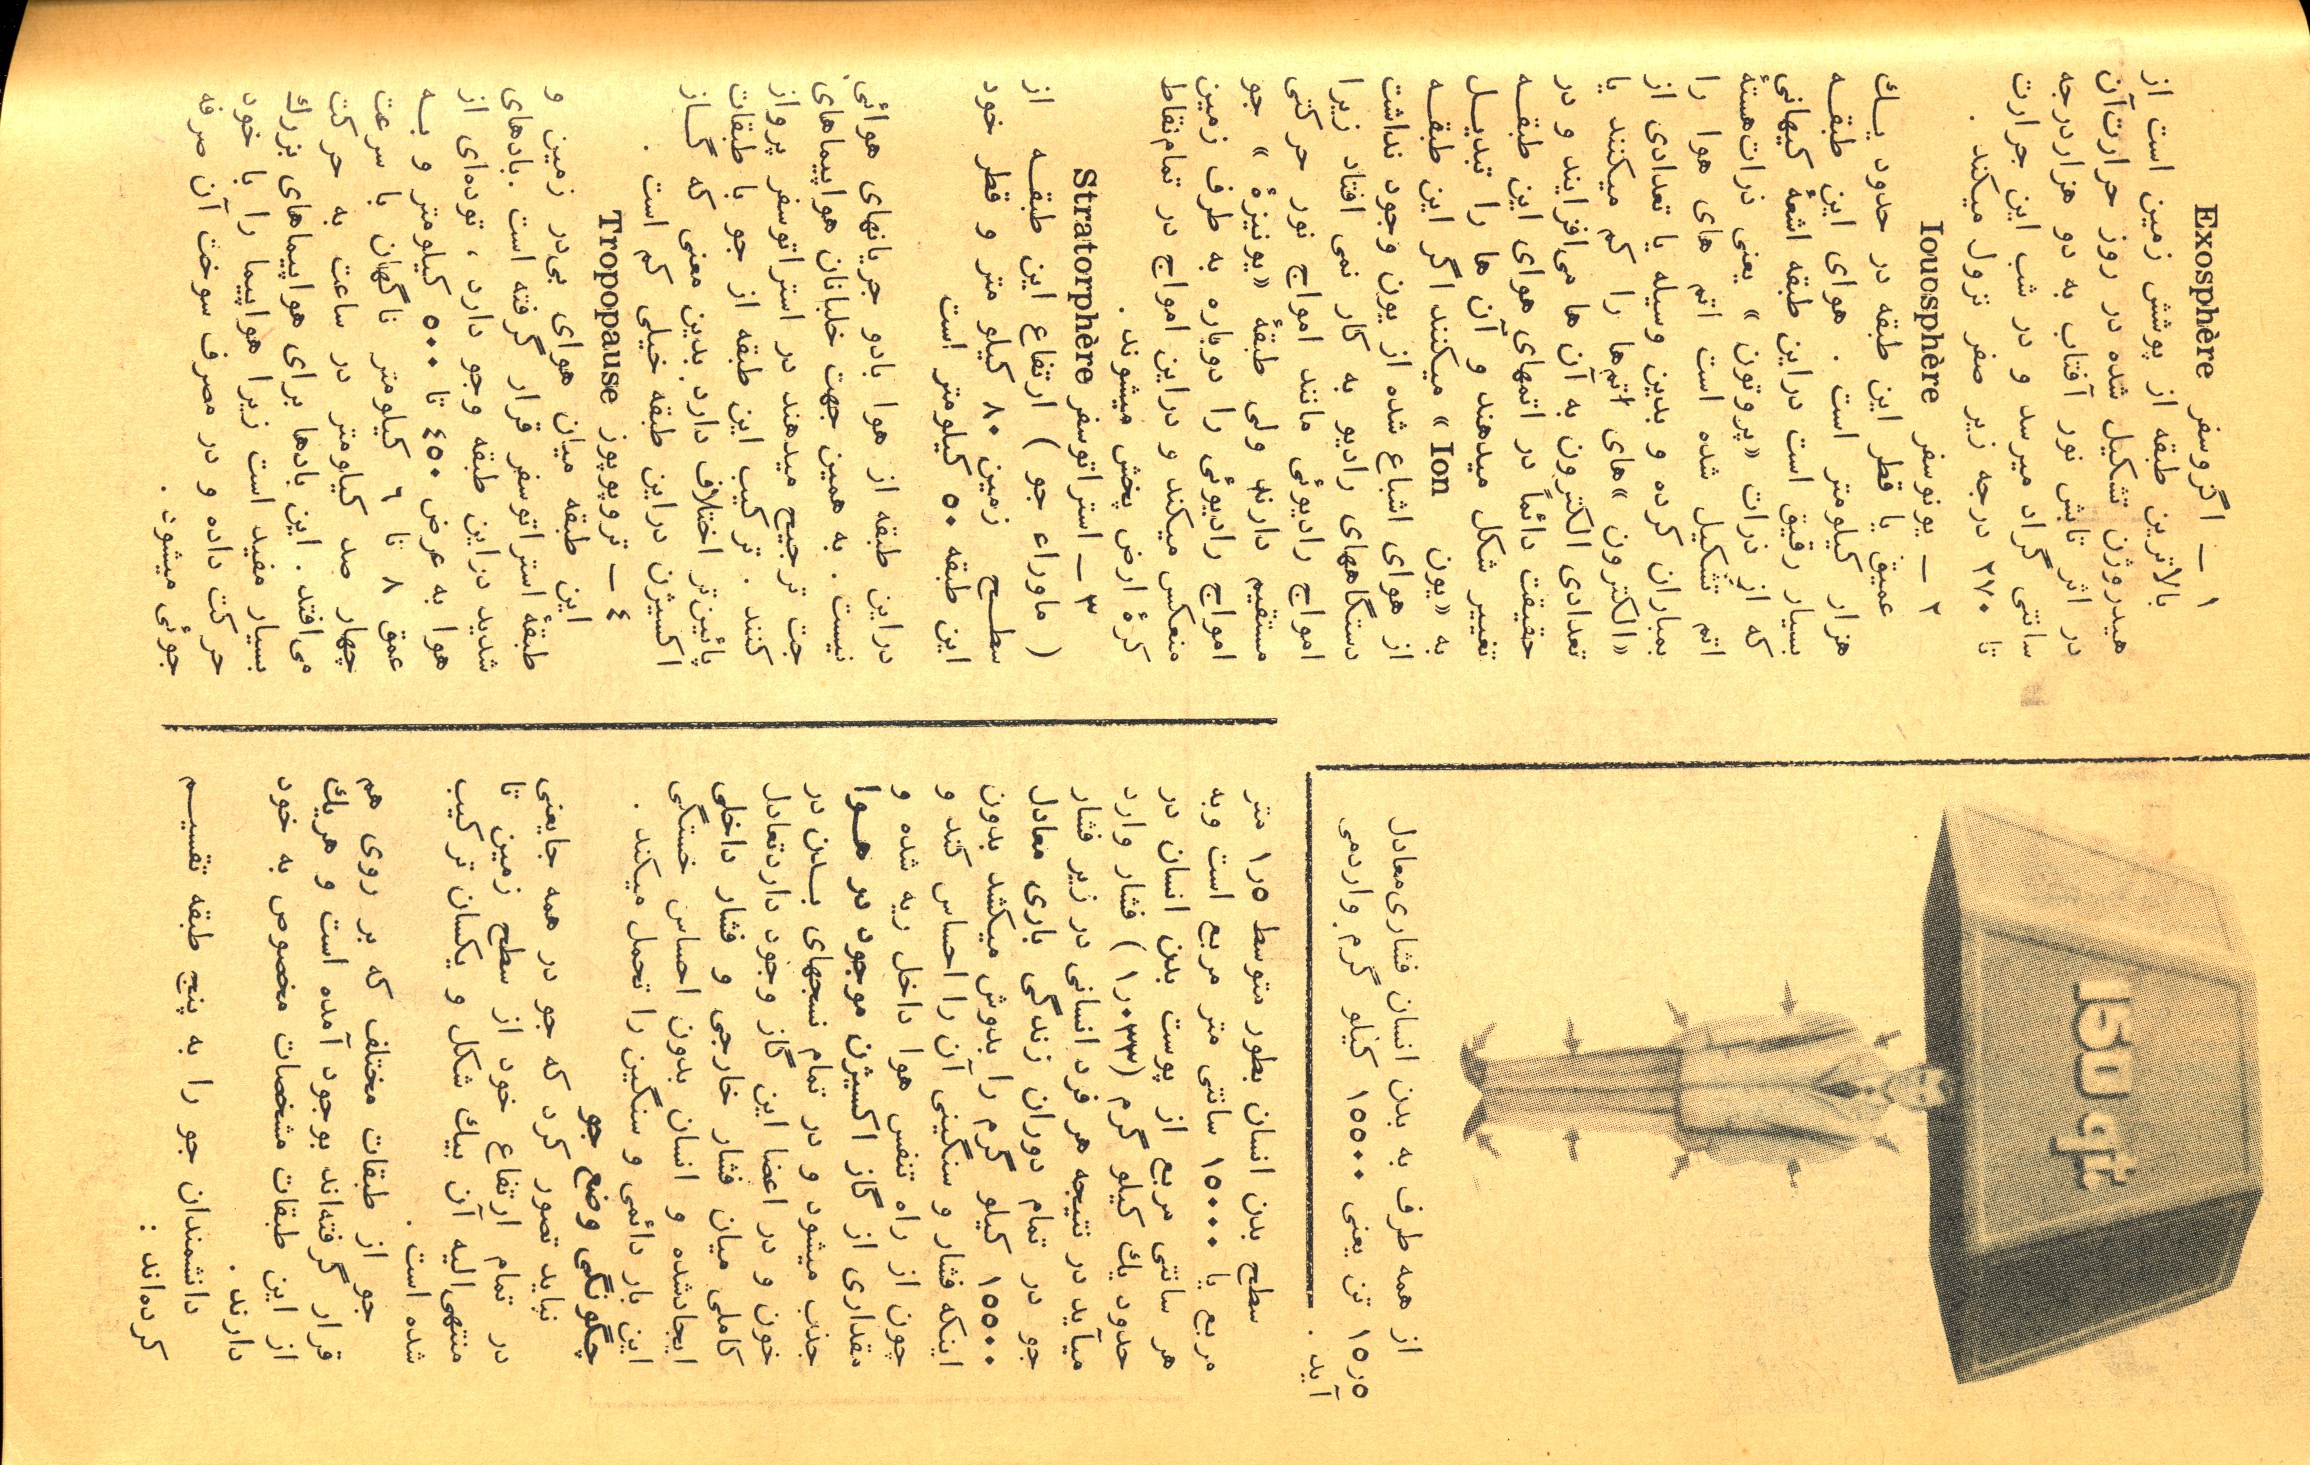 از همه طرف به بدن انسان فشاری‌معادل
۱۵ر۵ تن یعنی ۱۵۵۰۰ کیلو گرم واردمی
آید .
سطح بدن انسان بطور متوسط ۱ر۵ متر
مربع یا ۱۵۰۰۰ سانتی متر مربع است وبه
هر سانتی مربع از پوست بدن انسان در
حدود یك کیلو گرم (۱ر۰۳۳) فشار وارد
میآید در نتیجه هر فرد انسانی در زیر فشار
جو در تمام دوران زندگی باری معادل
۱۵۵۰۰ کیلو گرم را بدوش میکشد بدون
اینکه فشار و سنگینی آن را احساس کند و
چون از راه تنفس هوا داخل ریه شده و
مقداری از گاز اکسیژن موجود در هــوا
جذب میشود و در تمام نسجهای بــدن در
خون و در اعضا این گاز وجود داردتعادل
کاملی میان فشار خارجی و فشار داخلی
ایجادشده و انسان بدون احساس خستگی
این بار دائمی و سنگین را تحمل میکند .
چگونگی وضع جو
نباید تصور کرد که جو در همه جایعنی
در تمام ارتفاع خود از سطح زمین تا
منتهی‌الیه آن بیك شکل و یکسان ترکیب
شده است .
جو از طبقات مختلف که بر روی هم
قرار گرفته‌اند بوجود آمده است و هریك
از این طبقات مشخصات مخصوص به خود
دارند .
دانشمندان جو را به پنج طبقه تقسیــم
کرده‌اند :
۱ — اگزوسفر Exosphère
بالاترین طبقه از پوشش زمین است از
هیدروژن تشکیل شده در روز حرارت‌آن
در اثر تابش نور آفتاب به دو هزاردرجه
سانتی گراد میرسد و در شب این حرارت
تا ۲۷۰ درجه زیر صفر نزول میکند .
۲ — یونوسفر Iouosphère
عمیق یا قطر این طبقه در حدود یــك
هزار کیلومتر است . هوای این طبقــه
بسیار رقیق است دراین طبقه اشعهٔ کیهانی
که از ذرات «پروتون» یعنی ذرات‌هستهٔ
اتم تشکیل شده است اتم های هوا را
بمباران کرده و بدین وسیله یا تعدادی از
«الکترون»های اتم‌ها را کم میکنند یا
تعدادی الکترون به آن ها می‌افزایند و در
حقیقت دائماً در اتمهای هوای این طبقــه
تغییر شکل میدهند و آن ها را تبدیــل
به «یون Ion» میکنند اگر این طبقــه
از هوای اشباع شده از یون وجود نداشت
دستگاههای رادیو به کار نمی افتاد زیرا
امواج رادیوئی مانند امواج نور حرکتی
مستقیم دارند ولی طبقهٔ «یونیزهٔ» جو
امواج رادیوئی را دوباره به طرف زمین
منعکس میکند و دراین امواج در تمام‌نقاط
کرهٔ ارض پخش میشوند .
۳ — استراتوسفر Stratorphère
( ماوراء جو ) ارتفاع این طبقــه از
سطــح زمین ۸۰ کیلو متر و قطر خود
این طبقه ۵۰ کیلومتر است
دراین طبقه از هوا بادو جریانهای هوائی
نیست . به همین جهت خلبانان هواپیماهای
جت ترجیح میدهند در استراتوسفر پرواز
کنند . ترکیب این طبقه از جو با طبقات
پائین‌تر اختلاف دارد.بدین معنی که گــاز
اکسیژن دراین طبقه خیلی کم است .
٤ — تروپوپوز Tropopause
این طبقه میان هوای بی‌در زمین و
طبقهٔ استراتوسفر قرار گرفته است .بادهای
شدید دراین طبقه وجو دارد ، توده‌ای از
هوا به عرض ٤٥۰ تا ٥۰۰ کیلومتر و بــه
عمق ۸ تا ٦ کیلومتر ناگهان با سرعت
چهار صد کیلومتر در ساعت به حرکت
می‌افتد . این بادها برای هواپیماهای بزرك
بسیار مفید است زیرا هواپیما را با خود
حرکت داده و در مصرف سوخت آن صرفه
جوئی میشود .